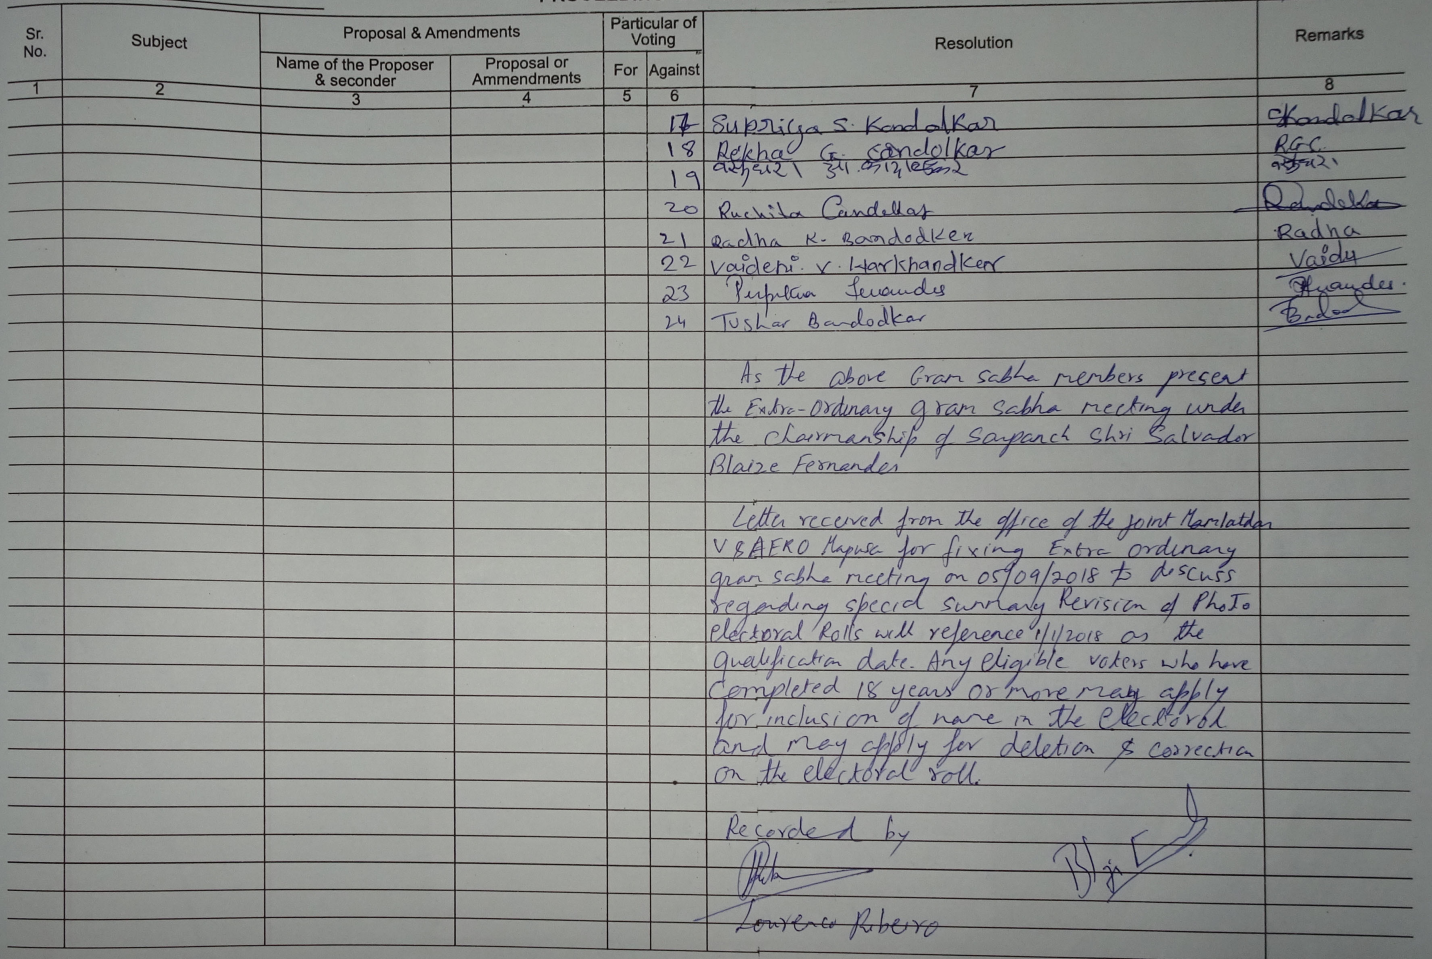 Sr. No.
Subject
Proposal & Amendments
Particular of Voting
Resolution
Remarks
Name of the Proposer & seconder
Proposal or Ammendments
For
Against
1 2 3 4 5 6 7 8
17 Supriya S. Kandolkar Skandolkar
18 Rekha G. Candolkar R.G.C.
19
20 Ruchita
21 Radha K. Bandodker Radha
22 Vaidehi. V. Harkhandker Vaidu
23 Perpetua Fernandes
24 Tushar Bandodkar
As the above Gram sabha members present
the Extra-Ordinary gram sabha meeting under
the chairmanship of Sarpanch Shri Salvador
Blaize Fernandes
Letter received from the office of the Joint Mamlatdar
V & AERO Mapusa for fixing Extra ordinary
gram sabha meeting on 05/09/2018 to discuss
regarding special summary Revision of Photo
electoral Rolls with reference 1/1/2018 as the
qualification date. Any eligible voters who have
completed 18 years or more may apply
for inclusion of name in the electoral
and may apply for deletion & correction
on the electoral roll.
Recorded by
Lourenco Ribeiro